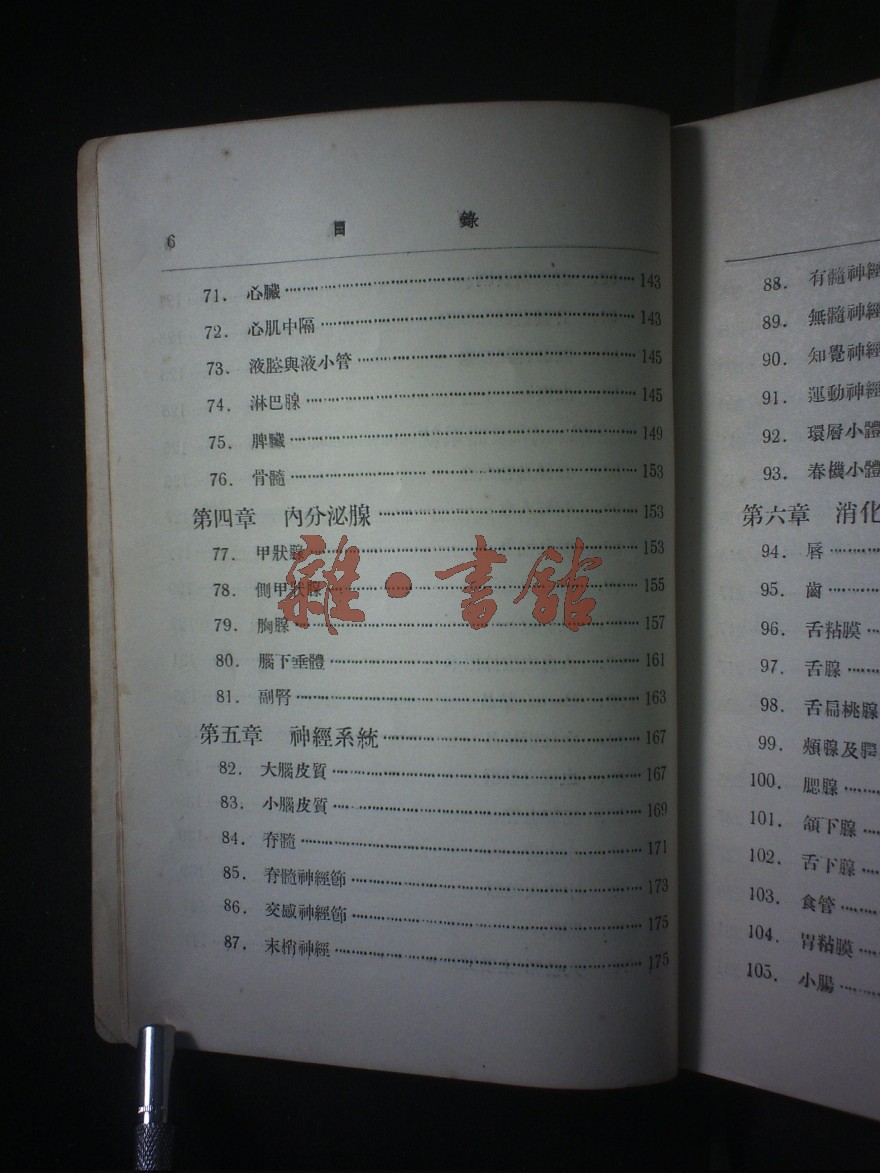 6 目 錄
71. 心臟 143
72. 心肌中隔 143
73. 液腔與液小管 145
74. 淋巴腺 145
75. 脾臟 149
76. 骨髓 153
第四章 內分泌腺 153
77. 甲狀腺 153
78. 側甲狀腺 155
79. 胸腺 157
80. 腦下垂體 161
81. 副腎 163
第五章 神經系統 167
82. 大腦皮質 167
83. 小腦皮質 169
84. 脊髓 171
85. 脊髓神經節 173
86. 交感神經節 175
87. 末梢神經 175
雜·書館
88. 有髓神經
89. 無髓神經
90. 知覺神經
91. 運動神經
92. 環層小體
93. 春機小體
第六章 消化
94. 唇
95. 齒
96. 舌粘膜
97. 舌腺
98. 舌扁桃腺
99. 頰腺及
100. 腮腺
101. 頷下腺
102. 舌下腺
103. 食管
104. 胃粘膜
105. 小腸